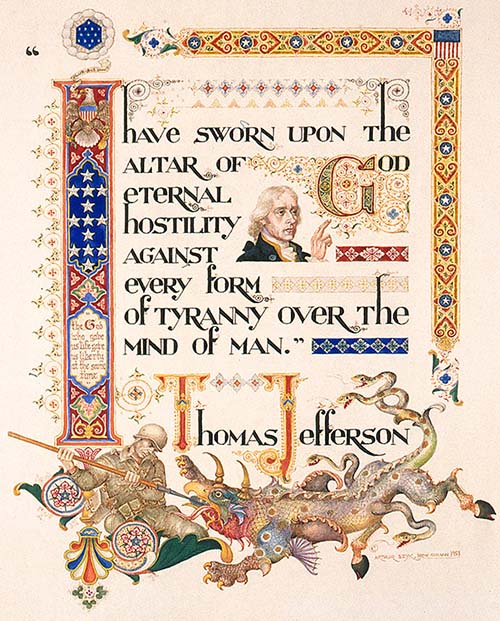 “I have sworn upon the
altar of God
eternal
hostility
against
every form
of tyranny over the
mind of man.”
the God
who gave
us life gave
us liberty
at the same
time.
Thomas Jefferson
Arthur Szyk, New Canaan 1951